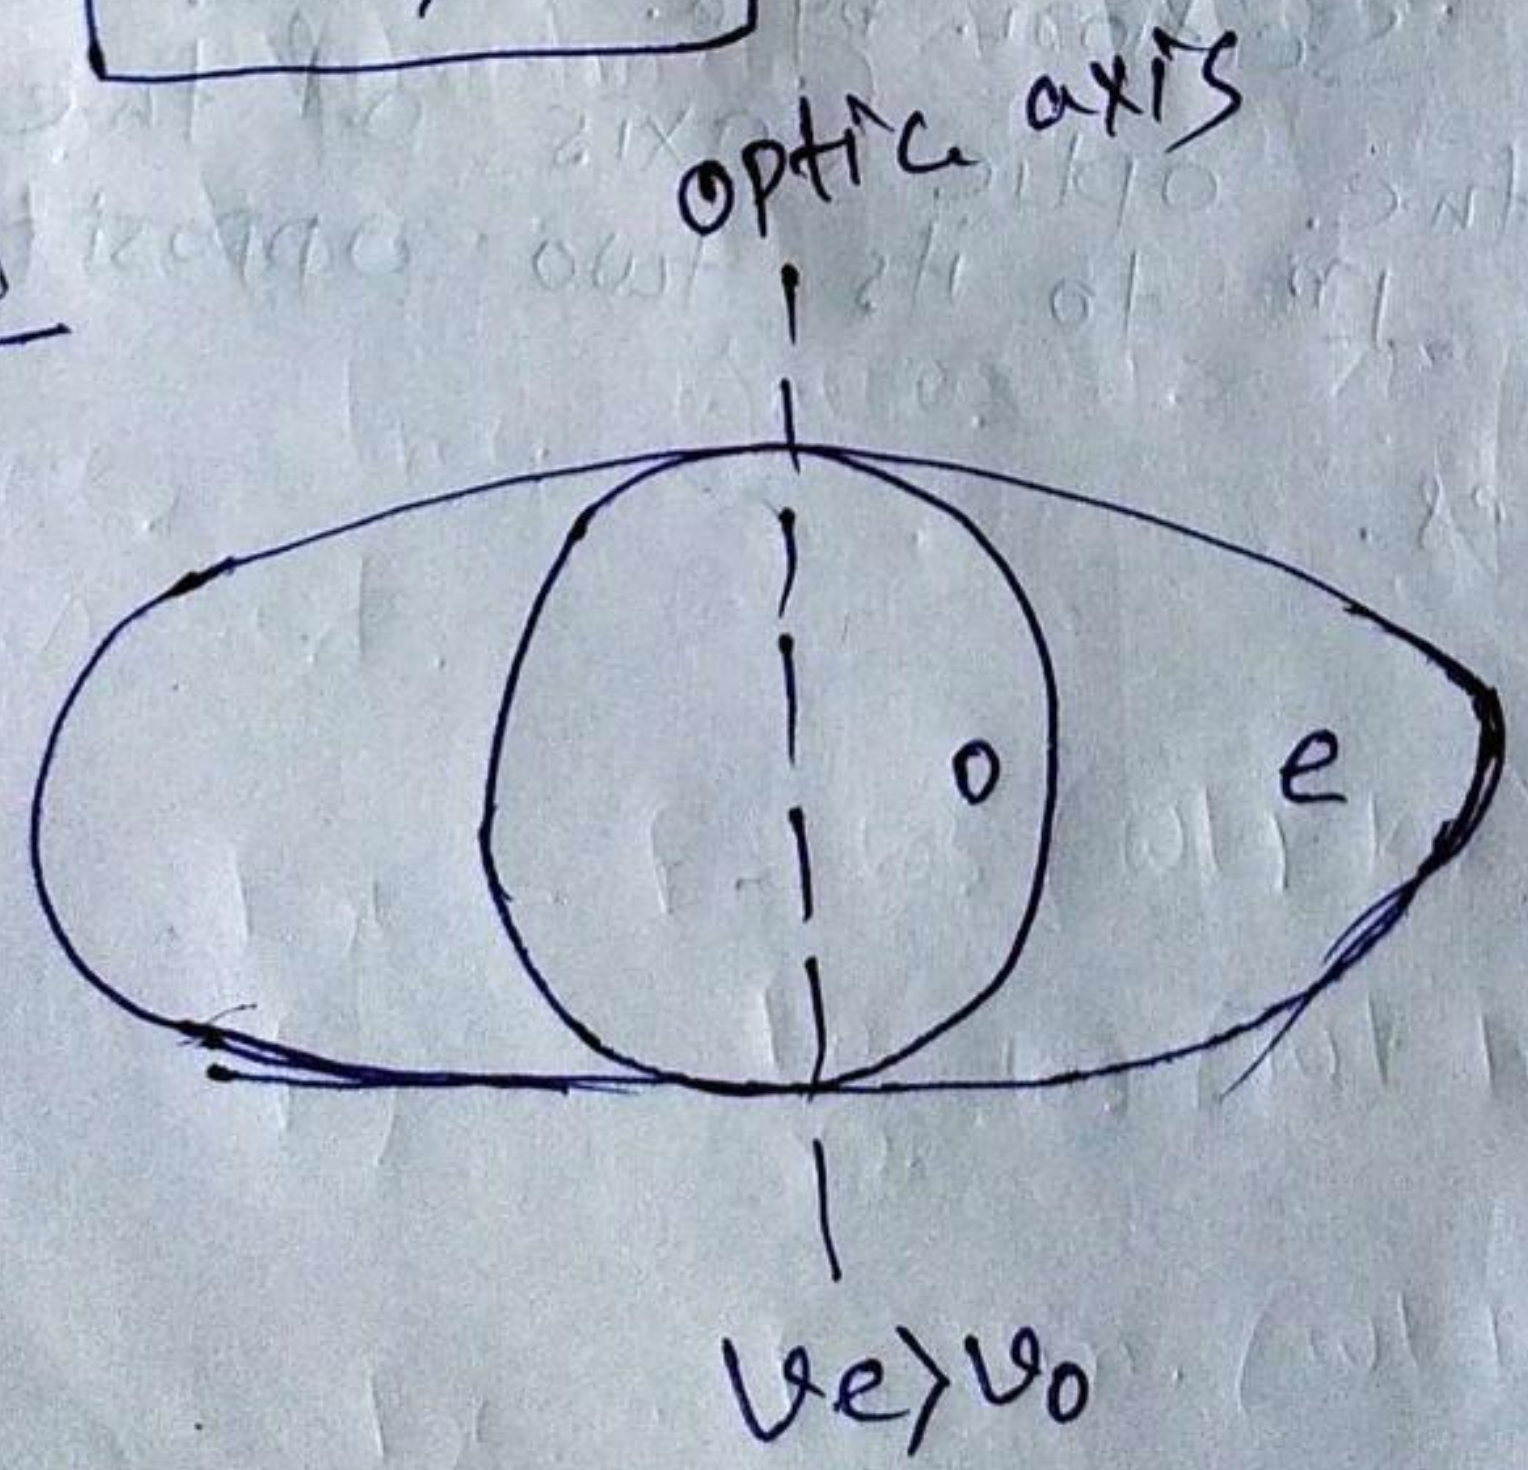 optic axis
o
e
ve>vo